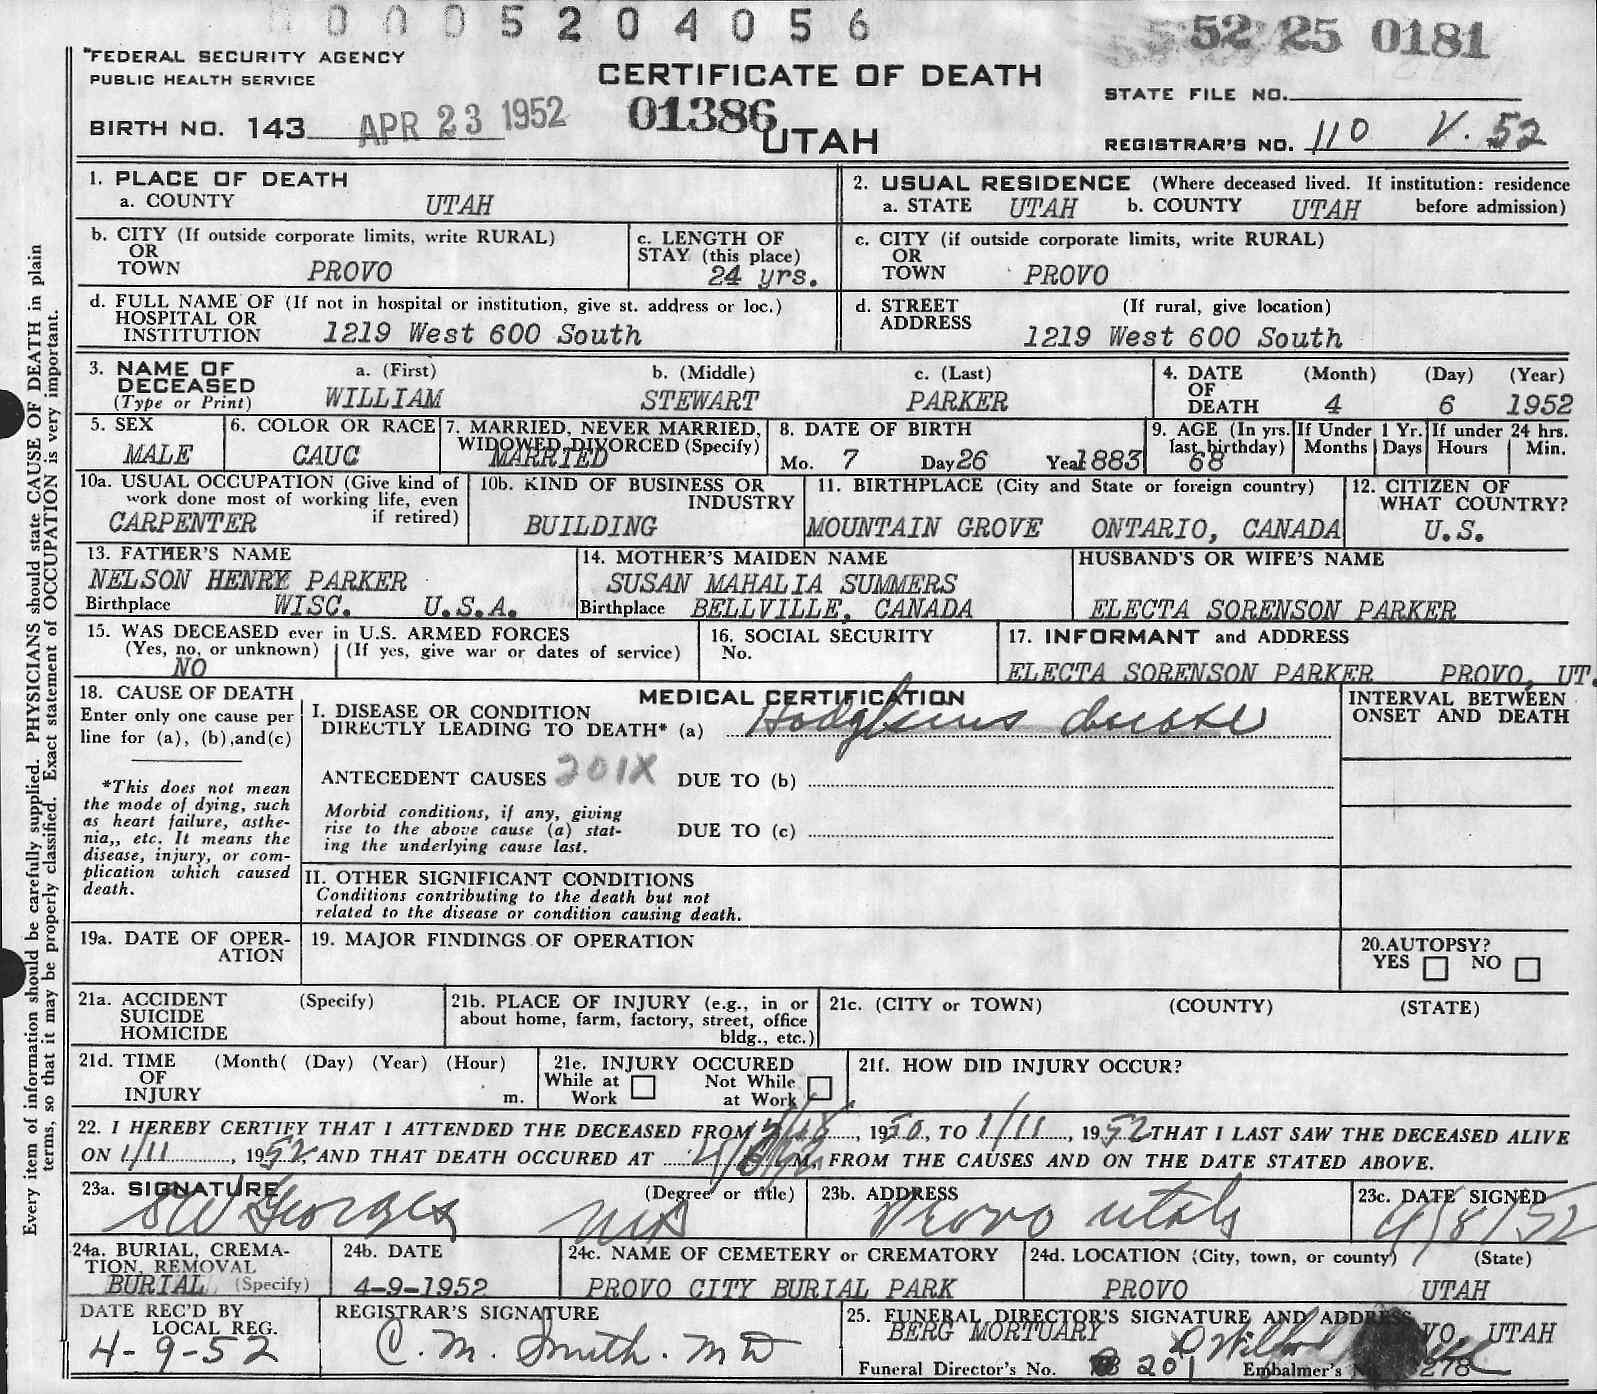 0005204056
52 25 0181
FEDERAL SECURITY AGENCY
PUBLIC HEALTH SERVICE
CERTIFICATE OF DEATH
STATE FILE NO.
BIRTH NO. 143 APR 23 1952 01386 UTAH
REGISTRAR'S NO. 110 V. 52
Every item of information should be carefully supplied. PHYSICIANS should state CAUSE OF DEATH in plain
terms, so that it may be properly classified. Exact statement of OCCUPATION is very important.
1. PLACE OF DEATH
a. COUNTY UTAH
2. USUAL RESIDENCE (Where deceased lived. If institution: residence
a. STATE UTAH b. COUNTY UTAH before admission)
b. CITY (If outside corporate limits, write RURAL)
OR
TOWN PROVO
c. LENGTH OF
STAY (this place)
24 yrs.
c. CITY (if outside corporate limits, write RURAL)
OR
TOWN PROVO
d. FULL NAME OF (If not in hospital or institution, give st. address or loc.)
HOSPITAL OR
INSTITUTION 1219 West 600 South
d. STREET (If rural, give location)
ADDRESS 1219 West 600 South
3. NAME OF a. (First) b. (Middle) c. (Last)
DECEASED
(Type or Print) WILLIAM STEWART PARKER
4. DATE (Month) (Day) (Year)
OF
DEATH 4 6 1952
5. SEX
MALE
6. COLOR OR RACE
CAUC
7. MARRIED, NEVER MARRIED,
WIDOWED, DIVORCED (Specify)
MARRIED
8. DATE OF BIRTH
Mo. 7 Day 26 Year 1883
9. AGE (In yrs.
last birthday)
68
If Under 1 Yr.
Months Days
If under 24 hrs.
Hours Min.
10a. USUAL OCCUPATION (Give kind of
work done most of working life, even
if retired)
CARPENTER
10b. KIND OF BUSINESS OR
INDUSTRY
BUILDING
11. BIRTHPLACE (City and State or foreign country)
MOUNTAIN GROVE ONTARIO, CANADA
12. CITIZEN OF
WHAT COUNTRY?
U.S.
13. FATHER'S NAME
NELSON HENRY PARKER
Birthplace WISC. U.S.A.
14. MOTHER'S MAIDEN NAME
SUSAN MAHALIA SUMMERS
Birthplace BELLVILLE, CANADA
HUSBAND'S OR WIFE'S NAME
ELECTA SORENSON PARKER
15. WAS DECEASED ever in U.S. ARMED FORCES
(Yes, no, or unknown) (If yes, give war or dates of service)
NO
16. SOCIAL SECURITY
No.
17. INFORMANT and ADDRESS
ELECTA SORENSON PARKER PROVO, UT.
18. CAUSE OF DEATH
Enter only one cause per
line for (a), (b),and(c)
*This does not mean
the mode of dying, such
as heart failure, asthe-
nia,, etc. It means the
disease, injury, or com-
plication which caused
death.
MEDICAL CERTIFICATION
I. DISEASE OR CONDITION
DIRECTLY LEADING TO DEATH* (a) Hodgkins disease
ANTECEDENT CAUSES 201X DUE TO (b)
Morbid conditions, if any, giving
rise to the above cause (a) stat-
ing the underlying cause last.
DUE TO (c)
II. OTHER SIGNIFICANT CONDITIONS
Conditions contributing to the death but not
related to the disease or condition causing death.
INTERVAL BETWEEN
ONSET AND DEATH
19a. DATE OF OPER-
ATION
19. MAJOR FINDINGS OF OPERATION
20.AUTOPSY?
YES NO
21a. ACCIDENT (Specify)
SUICIDE
HOMICIDE
21b. PLACE OF INJURY (e.g., in or
about home, farm, factory, street, office
bldg., etc.)
21c. (CITY or TOWN) (COUNTY) (STATE)
21d. TIME (Month( (Day) (Year) (Hour)
OF
INJURY m.
21e. INJURY OCCURED
While at Not While
Work at Work
21f. HOW DID INJURY OCCUR?
22. I HEREBY CERTIFY THAT I ATTENDED THE DECEASED FROM , 1950, TO 1/11, 1952 THAT I LAST SAW THE DECEASED ALIVE
ON 1/11, 1952, AND THAT DEATH OCCURED AT 4/6/52 M, FROM THE CAUSES AND ON THE DATE STATED ABOVE.
23a. SIGNATURE (Degree or title)
Georges MD
23b. ADDRESS
Provo Utah
23c. DATE SIGNED
4/8/52
24a. BURIAL, CREMA-
TION, REMOVAL
BURIAL (Specify)
24b. DATE
4-9-1952
24c. NAME OF CEMETERY or CREMATORY
PROVO CITY BURIAL PARK
24d. LOCATION (City, town, or county) (State)
PROVO UTAH
DATE REC'D BY
LOCAL REG.
4-9-52
REGISTRAR'S SIGNATURE
C. M. Smith. MD
25. FUNERAL DIRECTOR'S SIGNATURE AND ADDRESS
BERG MORTUARY VO, UTAH
Funeral Director's No. 201 Embalmer's 278